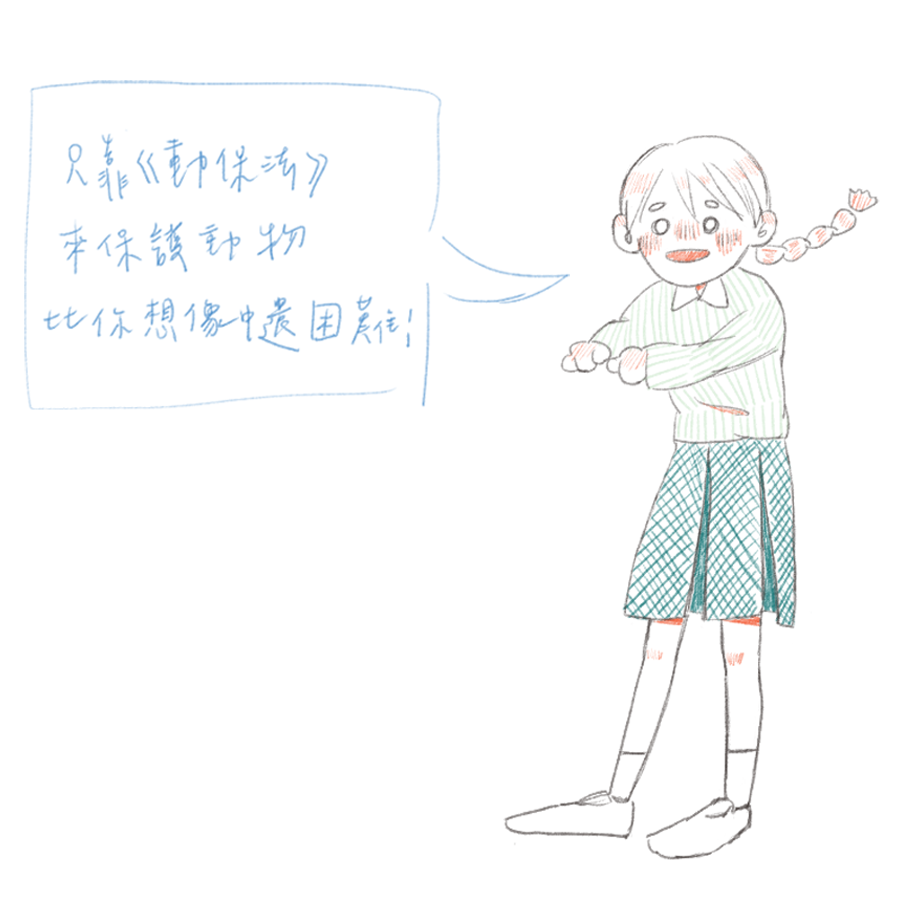 只靠《動保法》
來保護動物
比你想像中還困難!